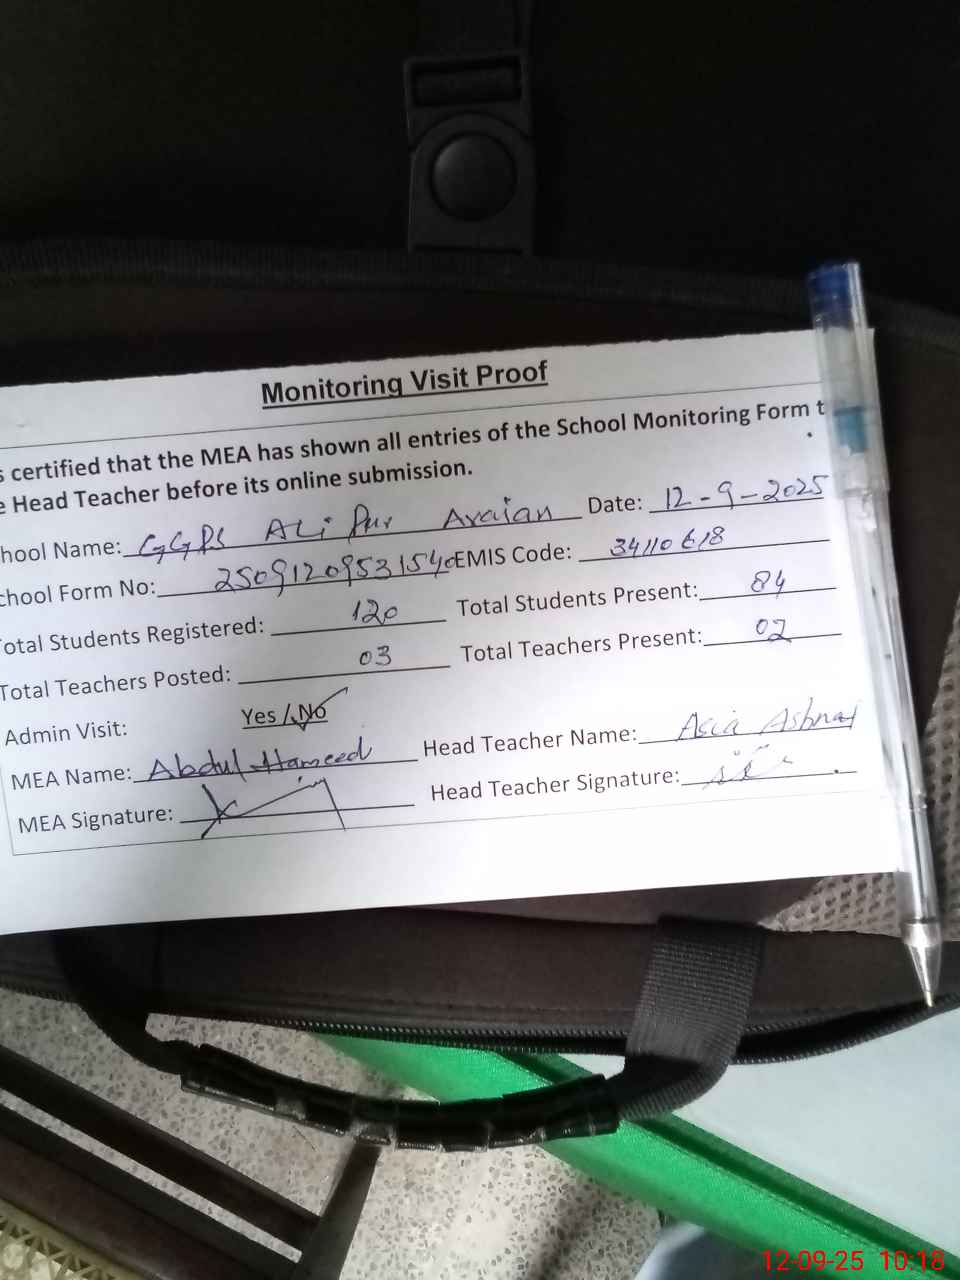 Monitoring Visit Proof
s certified that the MEA has shown all entries of the School Monitoring Form t
e Head Teacher before its online submission.
hool Name: GGPS ALi Pur Araian Date: 12-9-2025
chool Form No: 2509120953154 EMIS Code: 34110618
otal Students Registered: 120 Total Students Present: 84
Total Teachers Posted: 03 Total Teachers Present: 02
Admin Visit: Yes / No
MEA Name: Abdul Hameed Head Teacher Name: Asia Ashraf
MEA Signature: Head Teacher Signature:
12-09-25 10:18